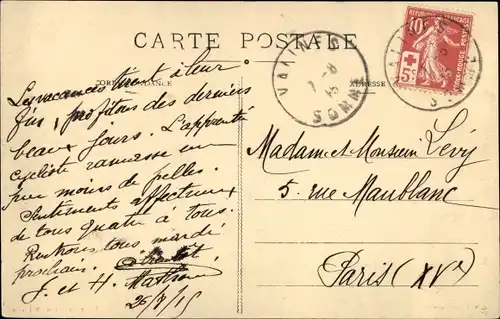 CARTE POSTALE
CORRESPONDANCE
ADRESSE
RÉPUBLIQUE FRANÇAISE
10c
5c
POSTES
SOMME
Les vacances tirent à leur
fin, profitons des derniers
beaux jours. L'apprenti
cycliste ramasse un
peu moins de pelles.
Sentiments affectueux
de tous quatre à tous.
Rentrons tous mardi
prochain.
J. et H.
26/9/15
Madame et Monsieur Lévy
5. rue Maublanc
Paris (XVe)